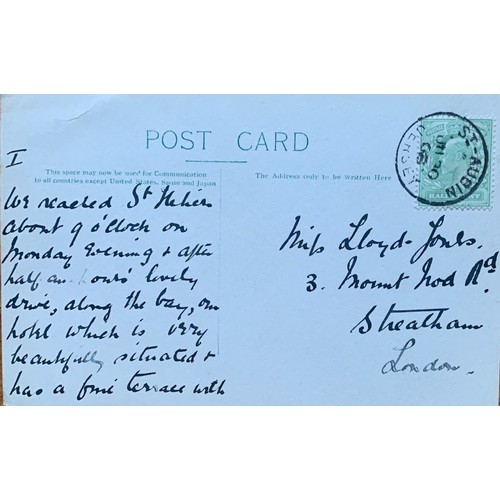 POST CARD
This space may now be used for Communication
to all countries except United States, Spain and Japan
The Address only to be written Here
ST. AUBIN
JERSEY
I
We reached St Heliers
about 9 o'clock on
Monday Evening & after
half an hours' lovely
drive, along the bay, our
hotel which is very
beautifully situated &
has a fine terrace with
Miss Lloyd-Jones.
3. Mount Nod Rd
Streatham
London.